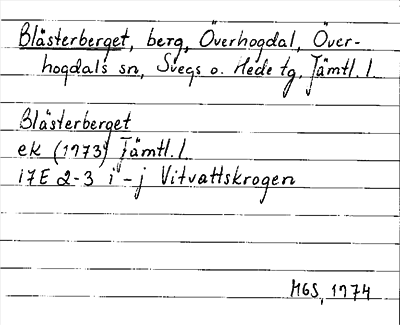 Blästerberget, berg, Överhogdal, Över-
hogdals sn, Svegs o. Hede tg, Jämtl. l.
Blästerberget
ek (1973) Jämtl. l
17E 2-3 i - j Vitvattskrogen
MGS, 1974